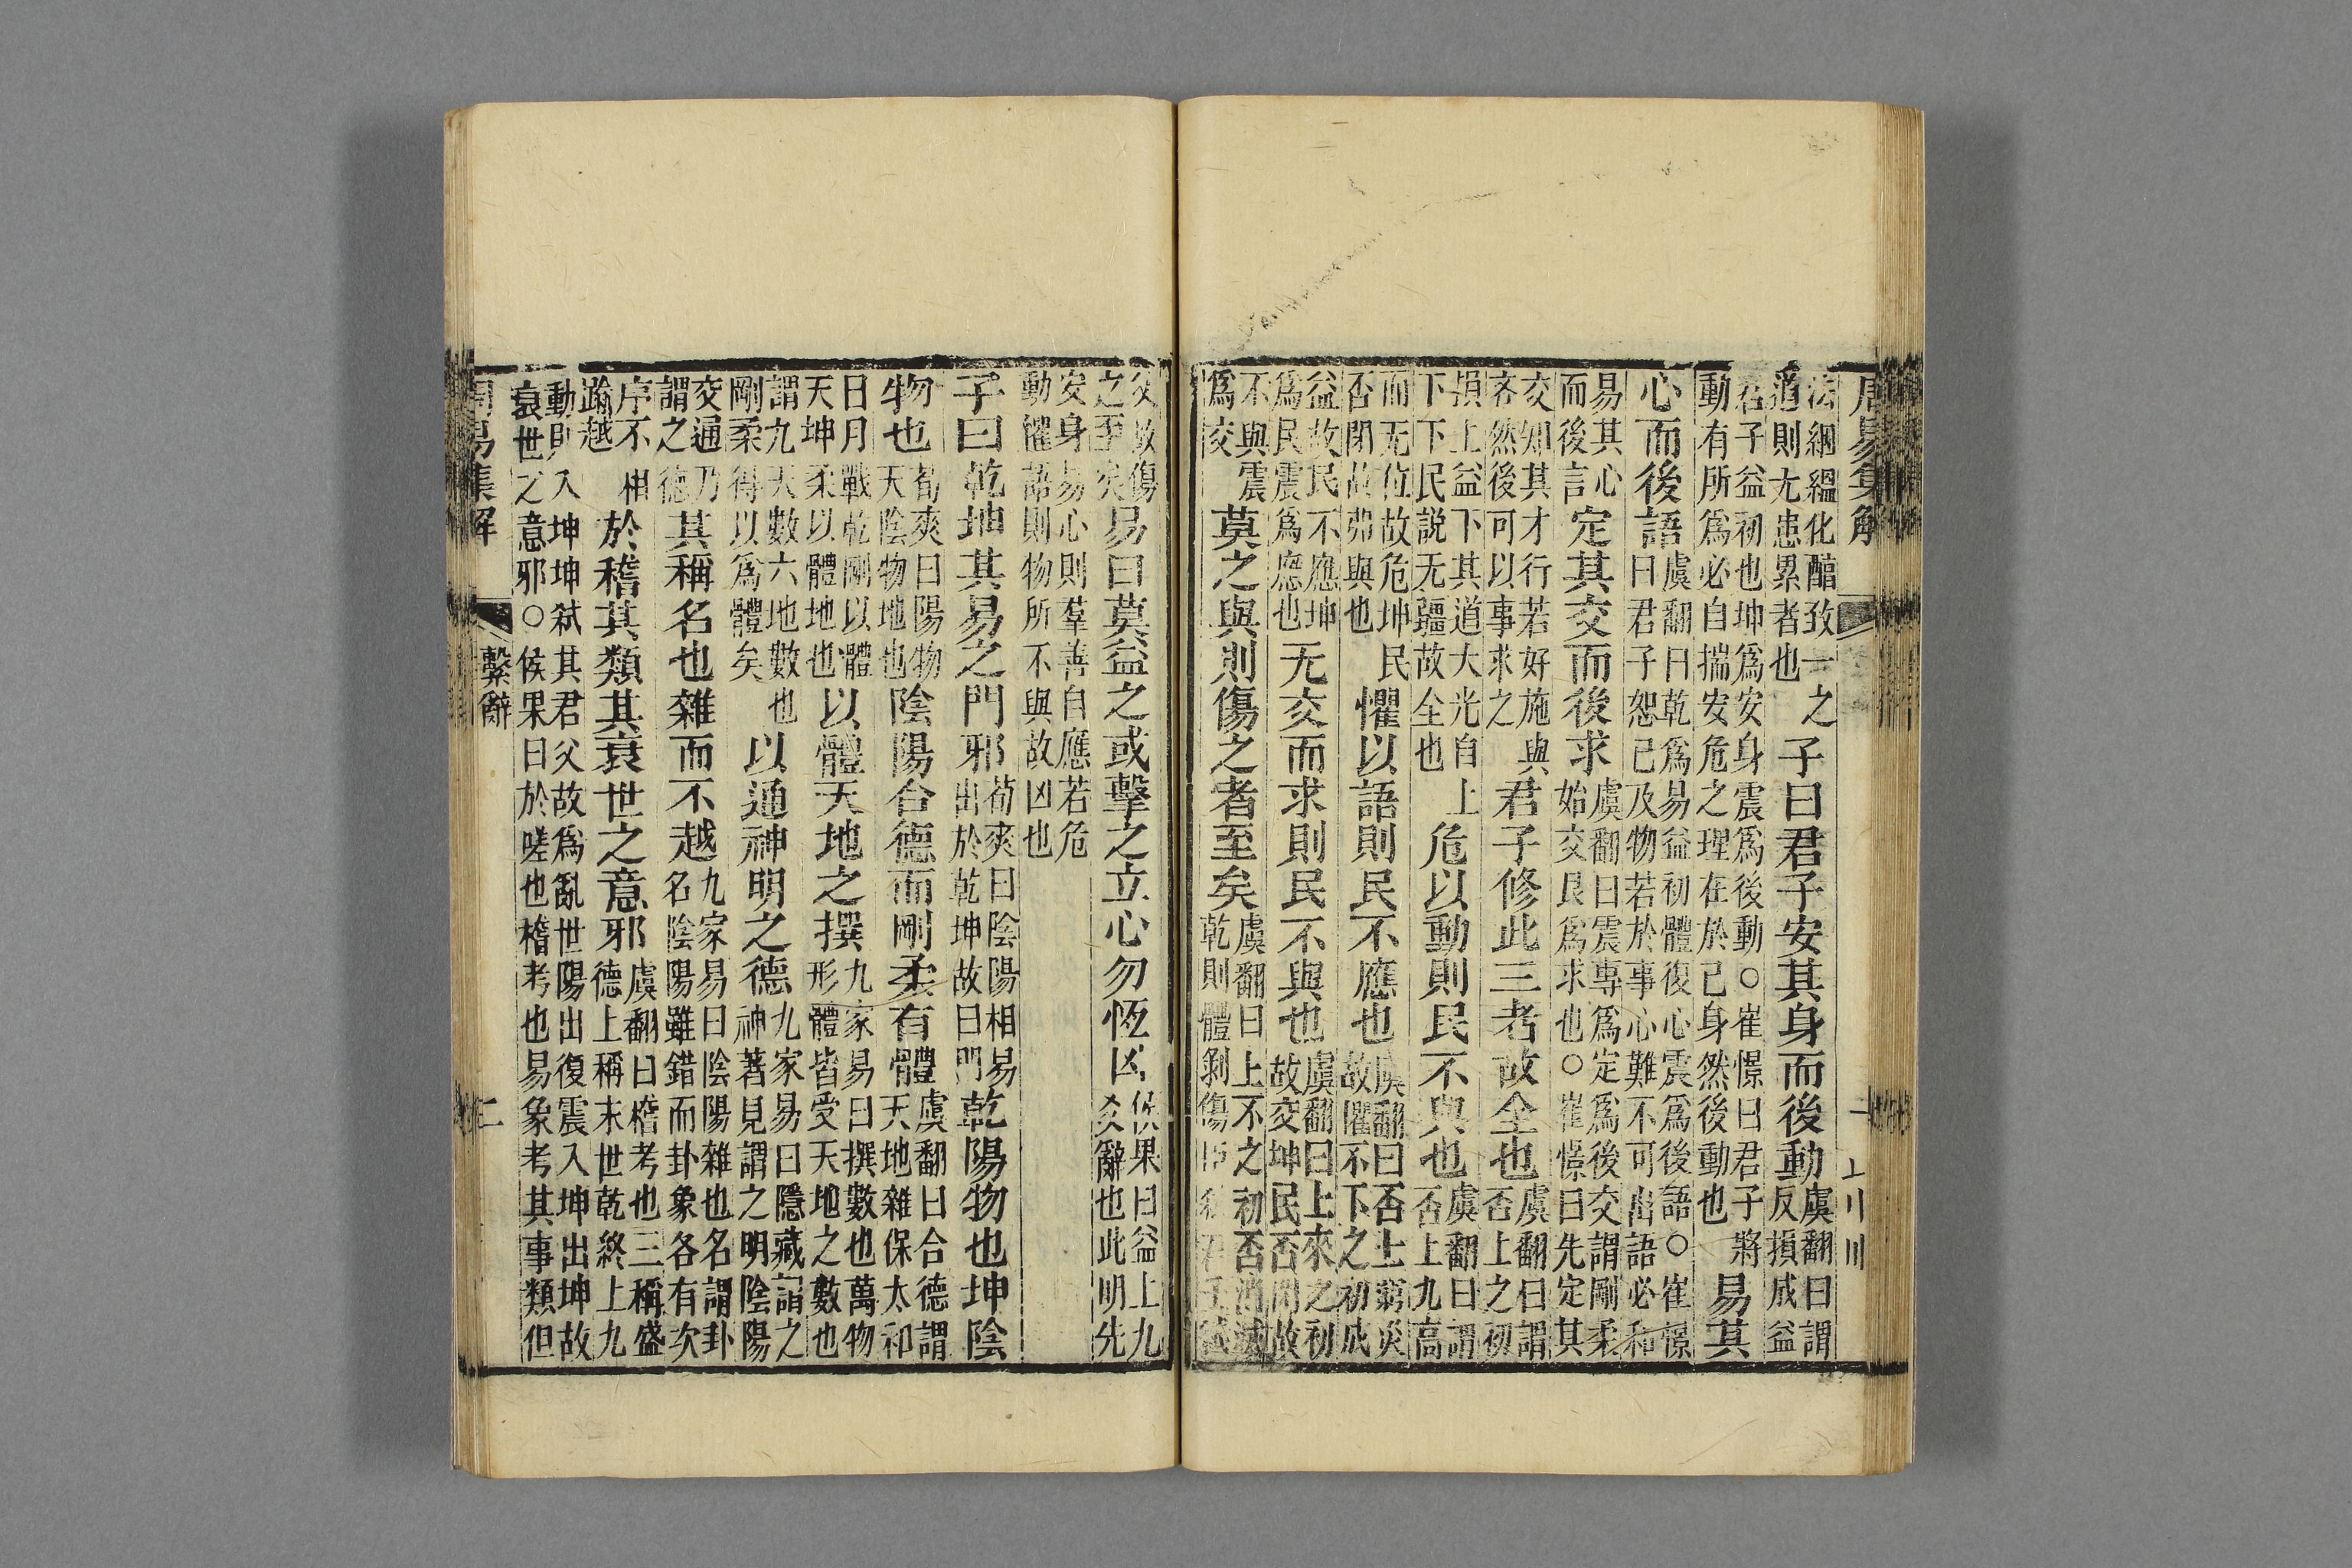 周易集解
法絪縕化醕致一之
道則尢患累者也
子曰君子安其身而後動
虞翻曰謂
反損成益
君子益初也坤爲安身震爲後動○崔憬曰君子將
動有所爲必自揣安危之理在於已身然後動也
易其
心而後語
虞翻曰乾爲易益初體復心震爲後語○崔憬
曰君子恕已及物若於事心難不可出語必和
易其心
而後言
定其交而後求
虞翻曰震專爲定爲後交謂剛柔
始交艮爲求也○崔憬曰先定其
交知其才行若好施與
吝然後可以事求之
君子修此三者故全也
虞翻曰謂
否上之初
損上益下其道大光自上
下下民説无疆故全也
危以動則民不與也
虞翻曰謂
否上九高
而无位故危坤民
否閉故弗與也
懼以語則民不應也
虞翻曰否上窮災
故懼不下之初成
益故民不應坤
爲民震爲應也
无交而求則民不與也
虞翻曰上來之初
故交坤民否閉故
不與震
爲交
莫之與則傷之者至矣
虞翻曰上不之初否消滅
乾則體剝傷臣
父故傷
之至矣
易曰莫益之或擊之立心勿恆凶
侯果曰益上九
爻辭也此明先
安身易心則羣善自應若危
動懼語則物所不與故凶也
子曰乾坤其易之門邪
荀爽曰陰陽相易
出於乾坤故曰門
乾陽物也坤陰
物也
荀爽曰陽物
天陰物地也
陰陽合德而剛柔有體
虞翻曰合德謂
天地雜保太和
日月戰乾剛以體
天坤柔以體地也
以體天地之撰
九家易曰撰數也萬物
形體皆受天地之數也
謂九天數六地數也
剛柔得以爲體矣
以通神明之德
九家易曰隱藏謂之
神著見謂之明陰陽
交通乃
謂之德
其稱名也雜而不越
九家易曰陰陽雜也名謂卦
名陰陽雖錯而卦象各有次
序不相
踰越
於稽其類其衰世之意邪
虞翻曰稽考也三稱盛
德上稱末世乾終上九
動則入坤坤弒其君父故爲亂世陽出復震入坤出坤故
衰世之意邪○侯果曰於嗟也稽考也易象考其事類但
周易集解
繫辭
二